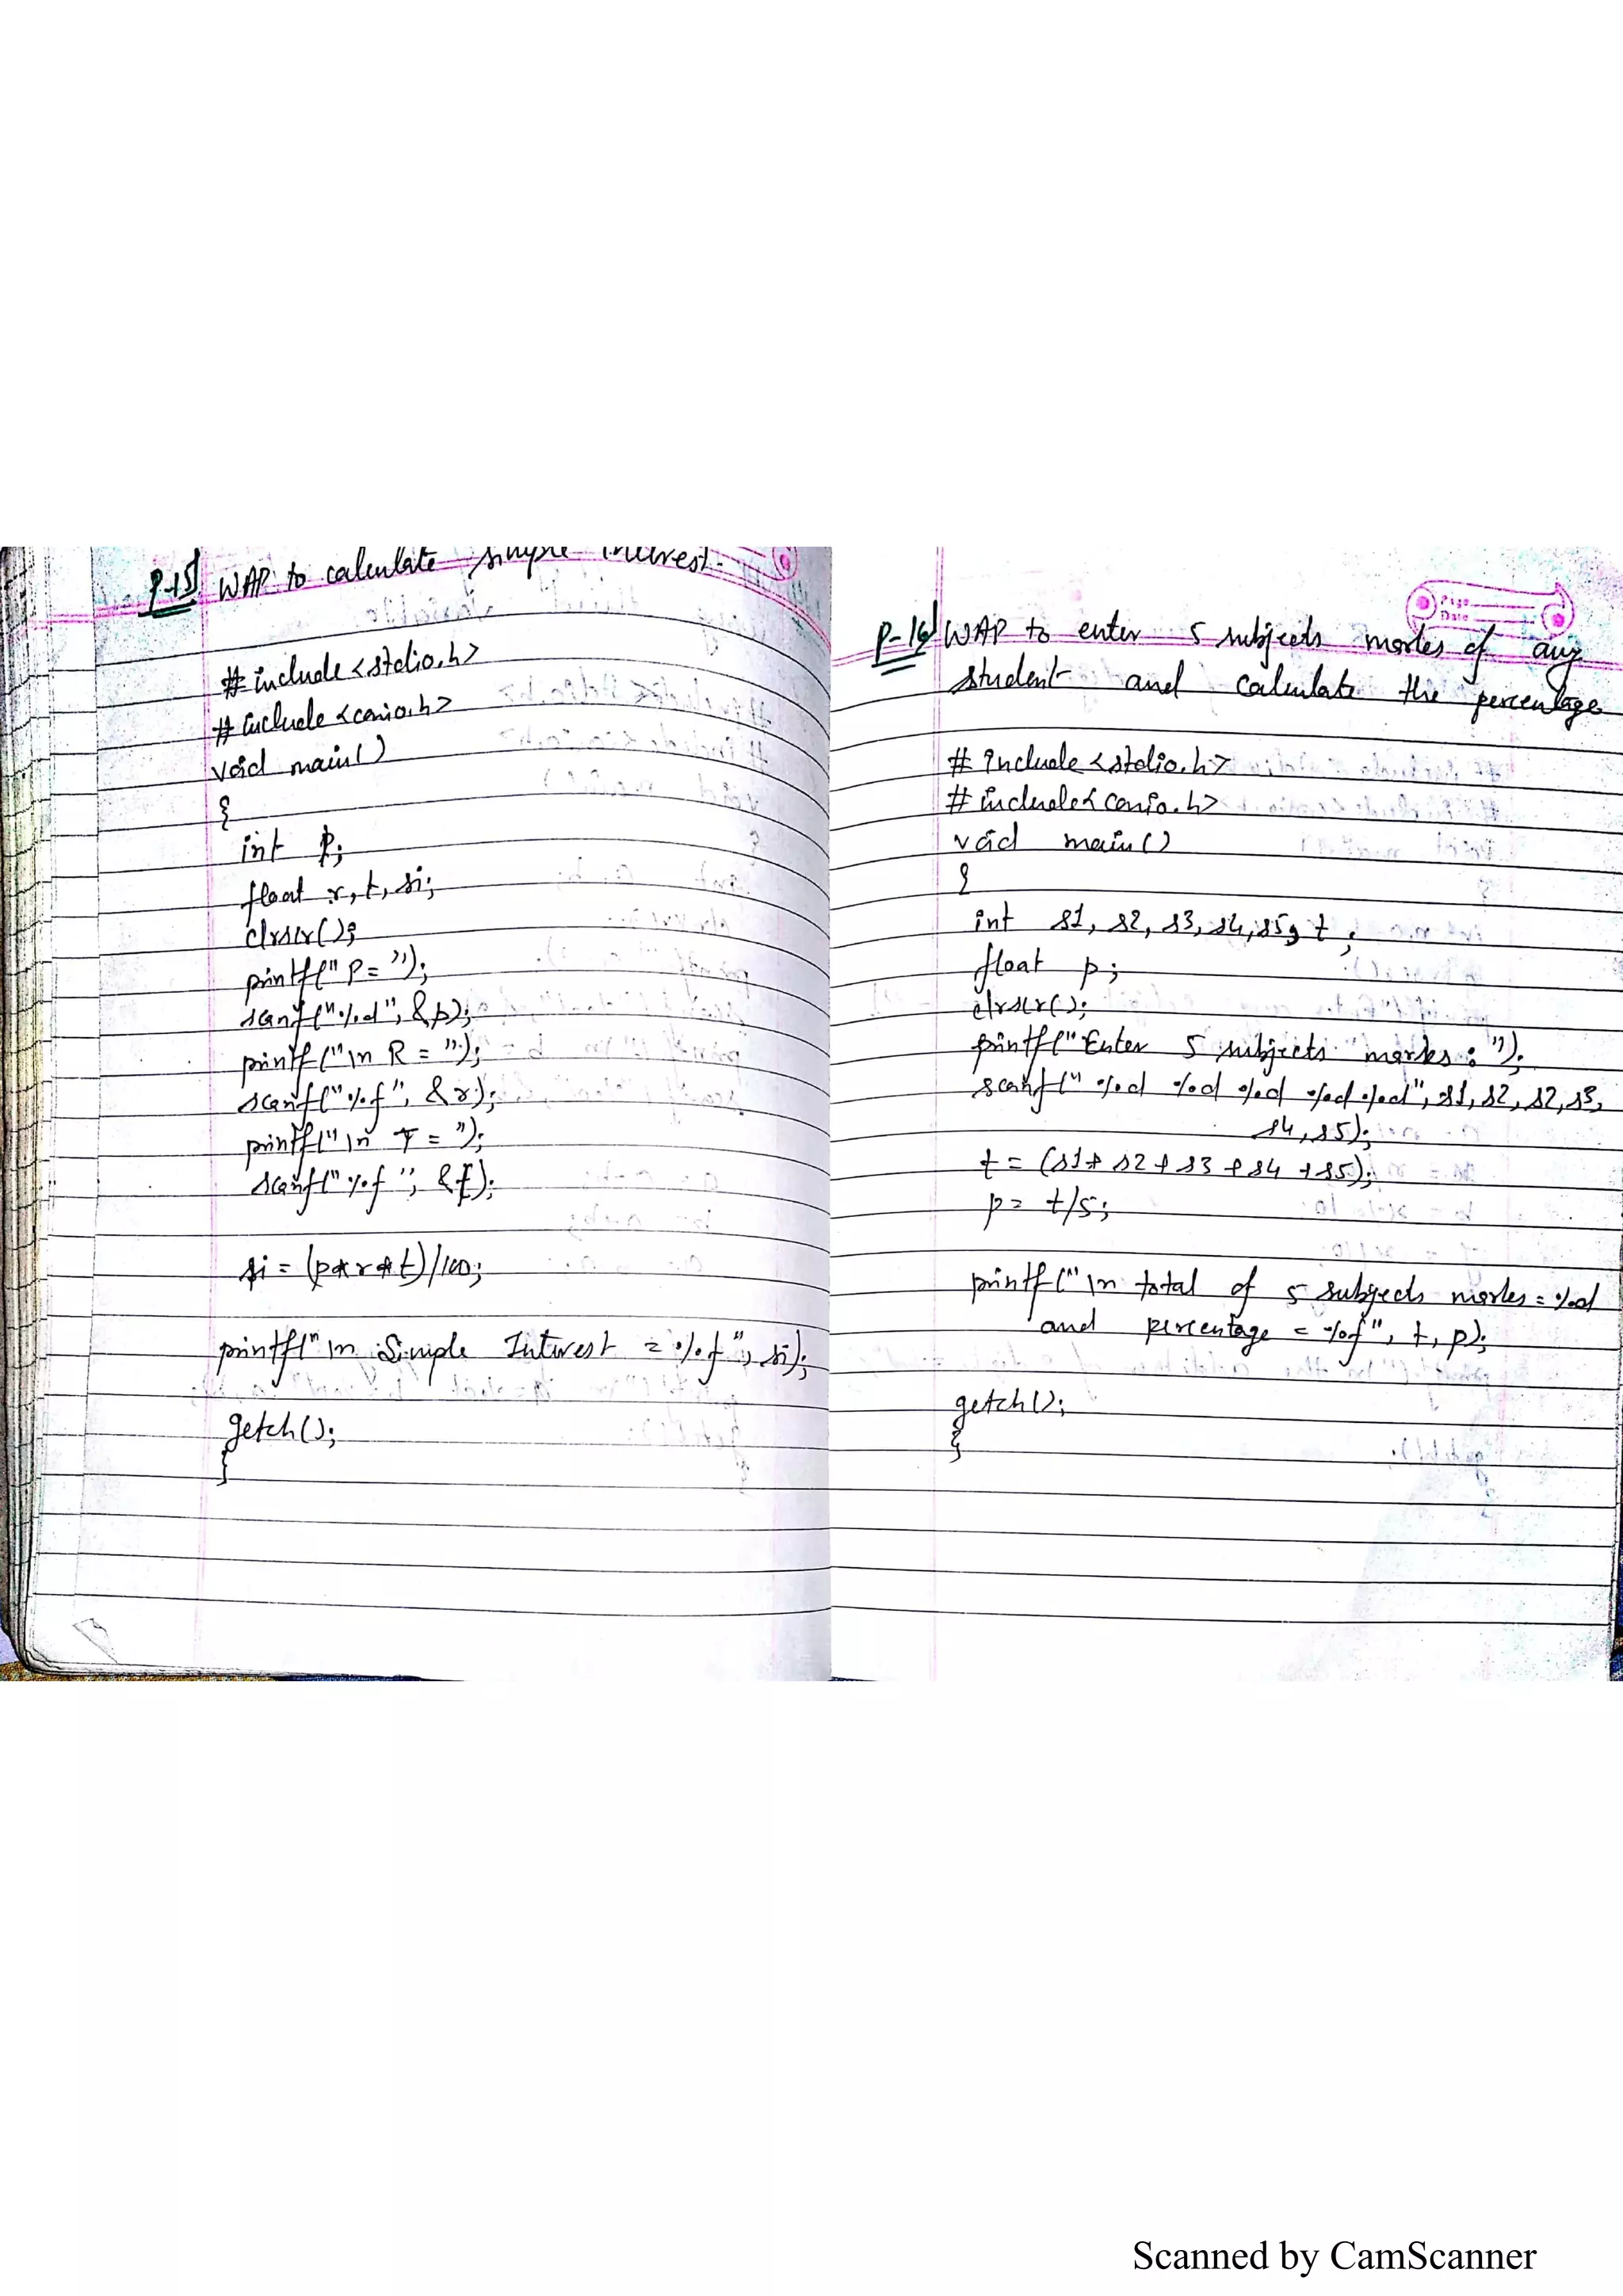 P-15 WAP to calculate simple interest.
#include <stdio.h>
#include <conio.h>
void main()
{
int p;
float r, t, si;
clrscr();
printf("P= ");
scanf("%d", &p);
printf("\n R = ");
scanf("%f", &r);
printf("\n T = ");
scanf("%f", &t);
si = (p*r*t)/100;
printf("\n Simple Interest = %f", si);
getch();
}
P-16 WAP to enter 5 subjects marks of any
student and calculate the percentage
Page
Date
#include <stdio.h>
#include <conio.h>
void main()
{
int s1, s2, s3, s4, s5, t;
float p;
clrscr();
printf("Enter 5 subjects marks: ");
scanf("%d %d %d %d %d", s1, s2, s2, s3,
s4, s5);
t = (s1+s2+s3+s4+s5);
p= t/5;
printf("\n total of 5 subjects marks=%d
and percentage = %f", t, p);
getch();
}
Scanned by CamScanner